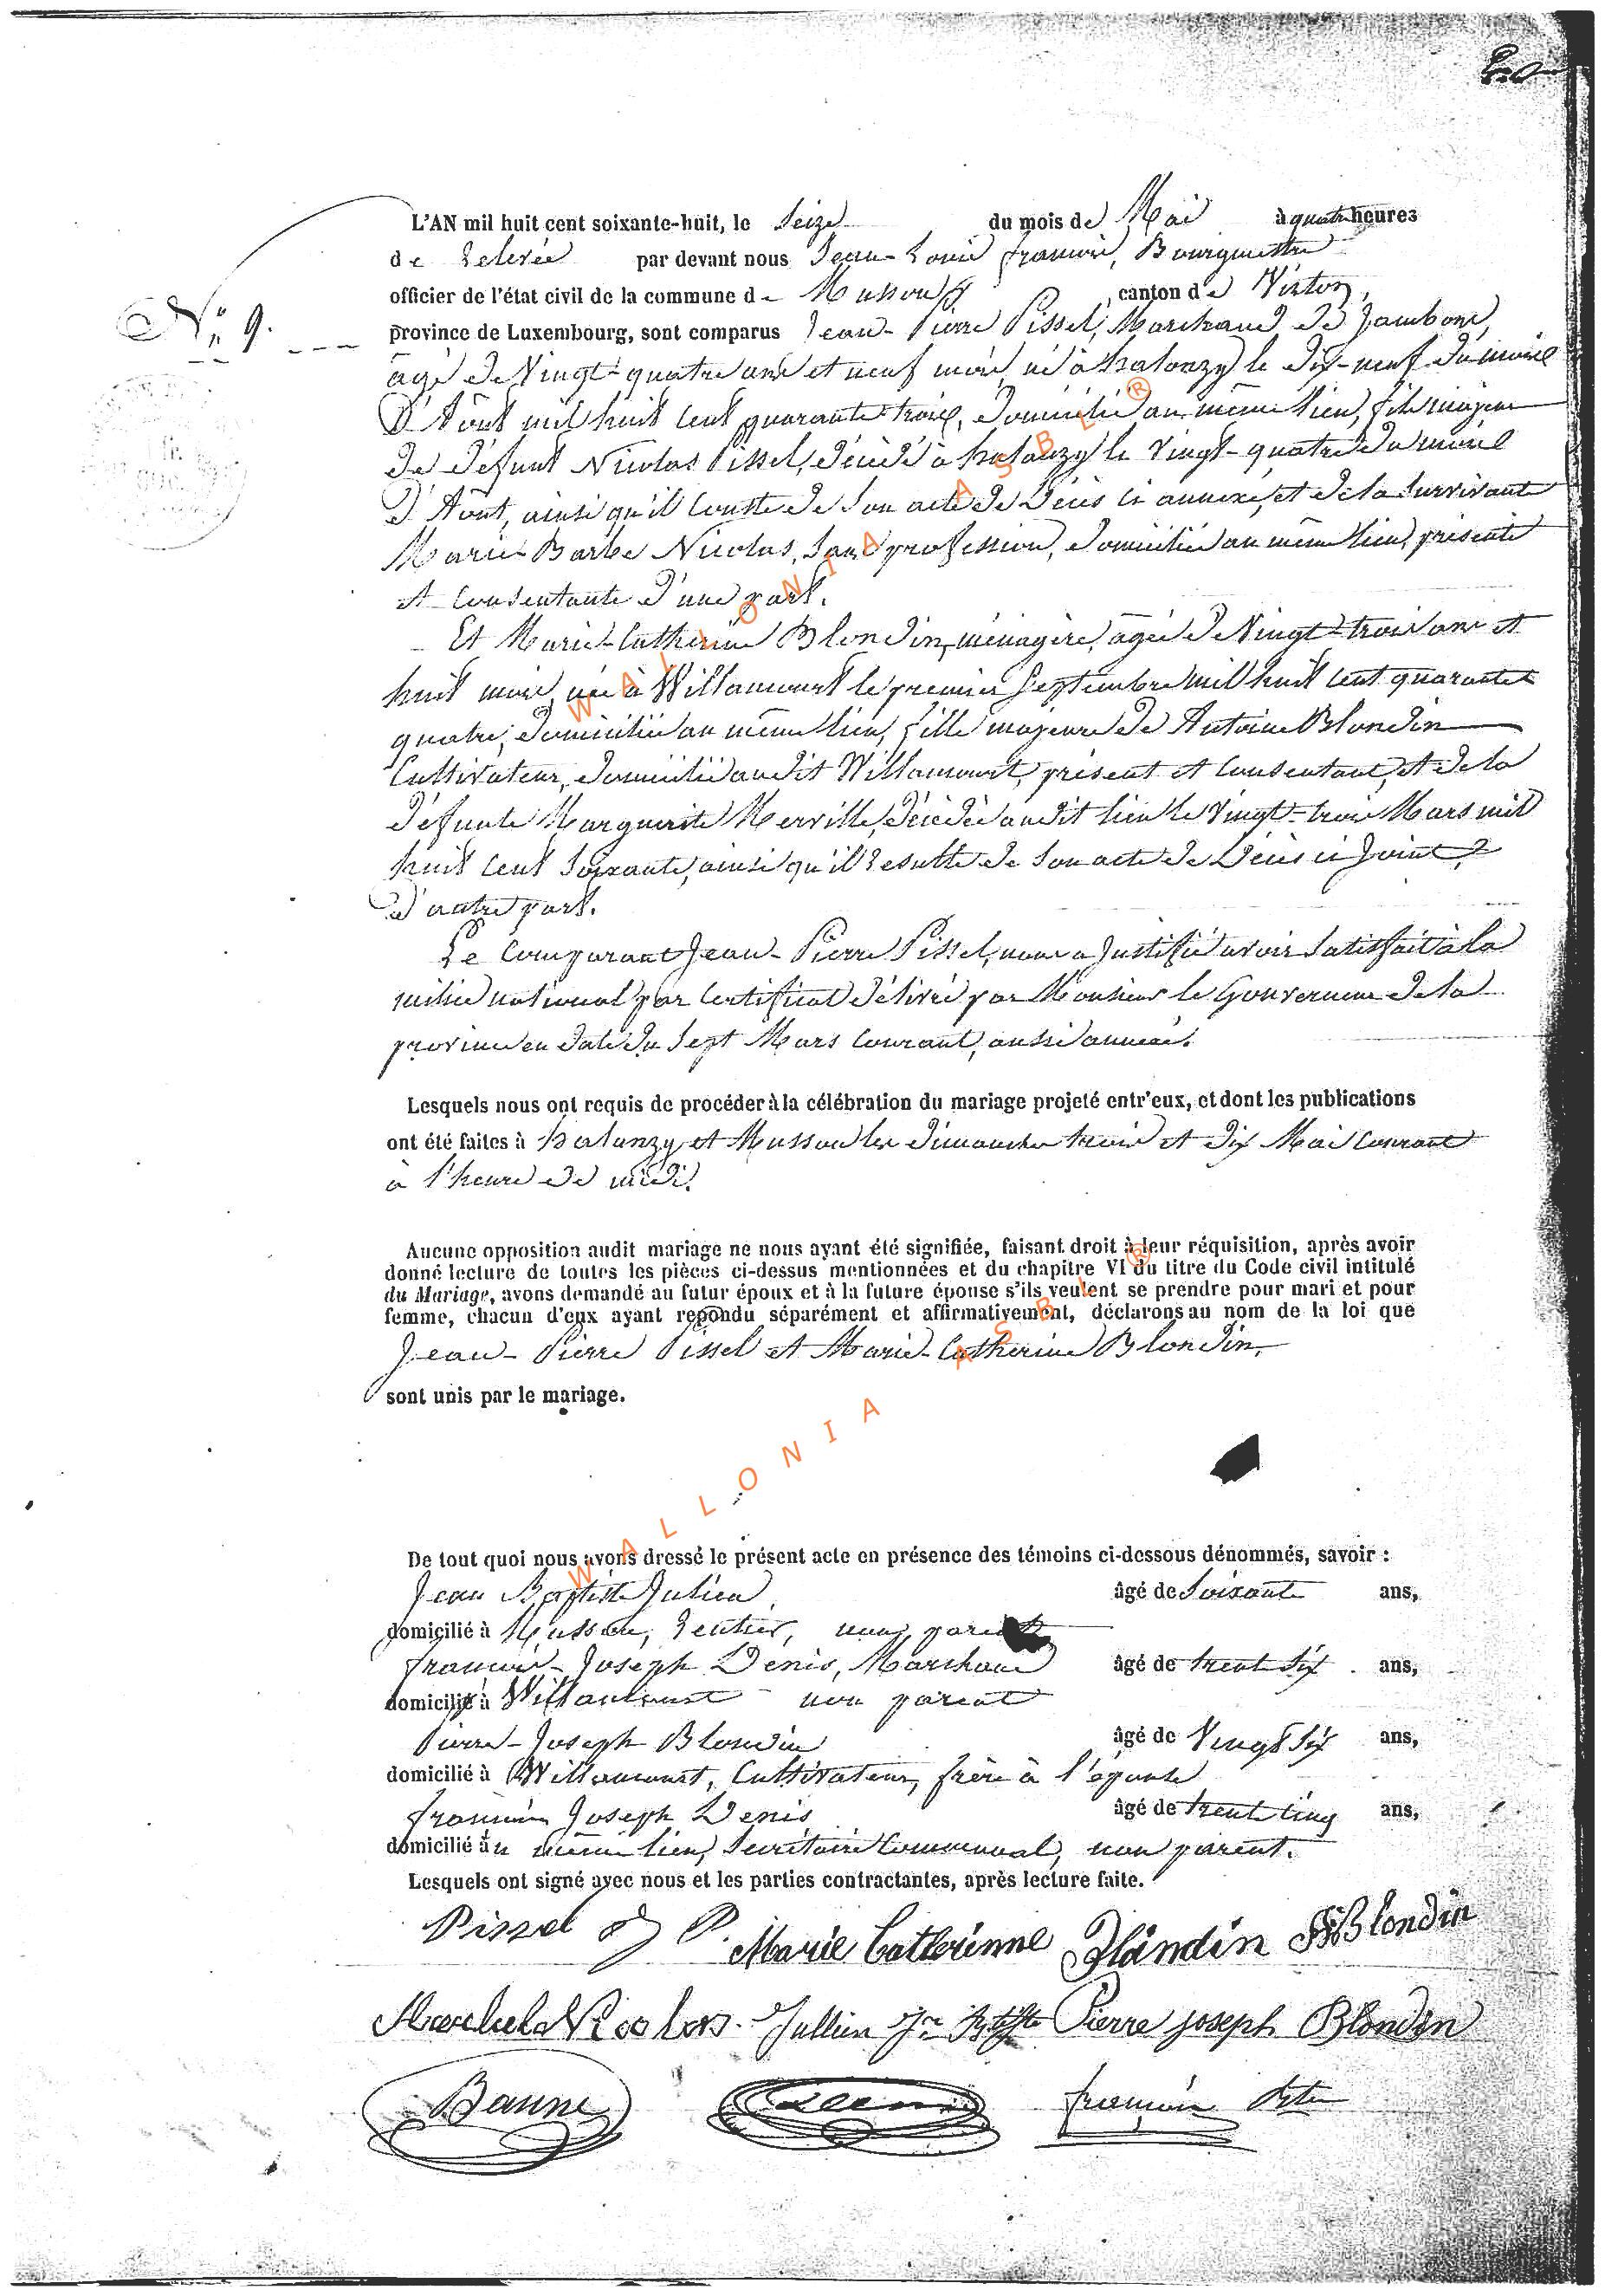 L'AN mil huit cent soixante-huit, le Seize du mois de Mai à quatre heures
de relevée par devant nous Jean-Louis françois, Bourgmestre
officier de l'état civil de la commune de Musson, canton de Virton,
N° 9.
province de Luxembourg, sont comparus Jean-Pierre Pissel, Marchand de Jambons,
âgé de Vingt-quatre ans et neuf mois, né à halanzy le dix-neuf du mois
d'Aout mil huit cent quarante trois, domicilié au même lieu, fils majeur
de défunt Nicolas Pissel, décédé à halanzy le Vingt-quatre du mois
d'Aout, ainsi qu'il conste de son acte de Décès ci annexé, et de la survivante
Marie-Barbe Nicolas, sans profession, domiciliée au même lieu, présente
et consentante d'une part.
Et Marie-Catherine Blondin, ménagère, âgée de Vingt-trois ans et
huit mois, née à Willancourt le premier Septembre mil huit cent quarante
quatre, domiciliée au même lieu, fille majeure de Antoine Blondin
Cultivateur, domicilié audit Willancourt, présent et consentant, et de la
défunte Marguerite Merville, décédée audit lieu le Vingt-trois Mars mil
huit cent soixante, ainsi qu'il resulte de son acte de Décès ci Joint,
d'autre part.
Le Comparant Jean-Pierre Pissel, nous a Justifié avoir satisfait à la
milice national par Certificat délivré par Monsieur le Gouverneur de la
province en date du Sept Mars courant, aussi annexé.
Lesquels nous ont requis de procéder à la célébration du mariage projeté entr'eux, et dont les publications
ont été faites à halanzy et Musson les dimanches trois et dix Mai Courant
à l'heure de midi.
Aucune opposition audit mariage ne nous ayant été signifiée, faisant droit à leur réquisition, après avoir
donné lecture de toutes les pièces ci-dessus mentionnées et du chapitre VI du titre du Code civil intitulé
du Mariage, avons demandé au futur époux et à la future épouse s'ils veulent se prendre pour mari et pour
femme, chacun d'eux ayant repondu séparément et affirmativement, déclarons au nom de la loi que
Jean-Pierre Pissel et Marie-Catherine Blondin,
sont unis par le mariage.
WALLONIA ASBL ®
WALLONIA ASBL ®
De tout quoi nous avons dressé le présent acte en présence des témoins ci-dessous dénommés, savoir :
Jean Baptiste Julien, âgé de Soixante ans,
domicilié à Musson, rentier, non parent
françois-Joseph Denis, Marchand âgé de trent six ans,
domicilié à Willancourt non parent
Pierre-Joseph Blondin âgé de Vingt six ans,
domicilié à Willancourt, Cultivateur, frère à l'épouse
françois Joseph Denis âgé de trent cinq ans,
domicilié au même lieu, Secrétaire Communal, non parent.
Lesquels ont signé avec nous et les parties contractantes, après lecture faite.
Pissel J P. Marie Catherinne Blondin Blondin
Nicolas. Jullien Jn Bptiste Pierre joseph Blondin
françois